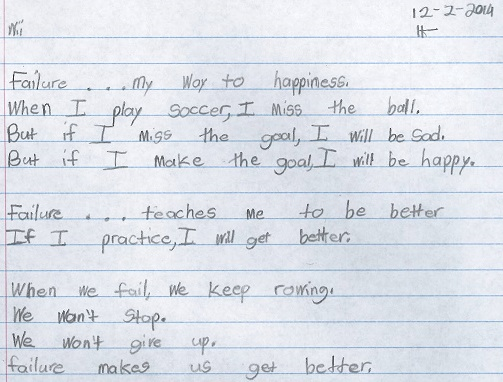 12-2-2014
Wii
Failure . . . my way to happiness.
When I play soccer, I miss the ball.
But if I miss the goal, I will be sad.
But if I make the goal, I will be happy.
Failure . . . teaches me to be better
If I practice, I will get better.
When we fail, we keep rowing.
We won't stop.
We won't give up.
failure makes us get better.